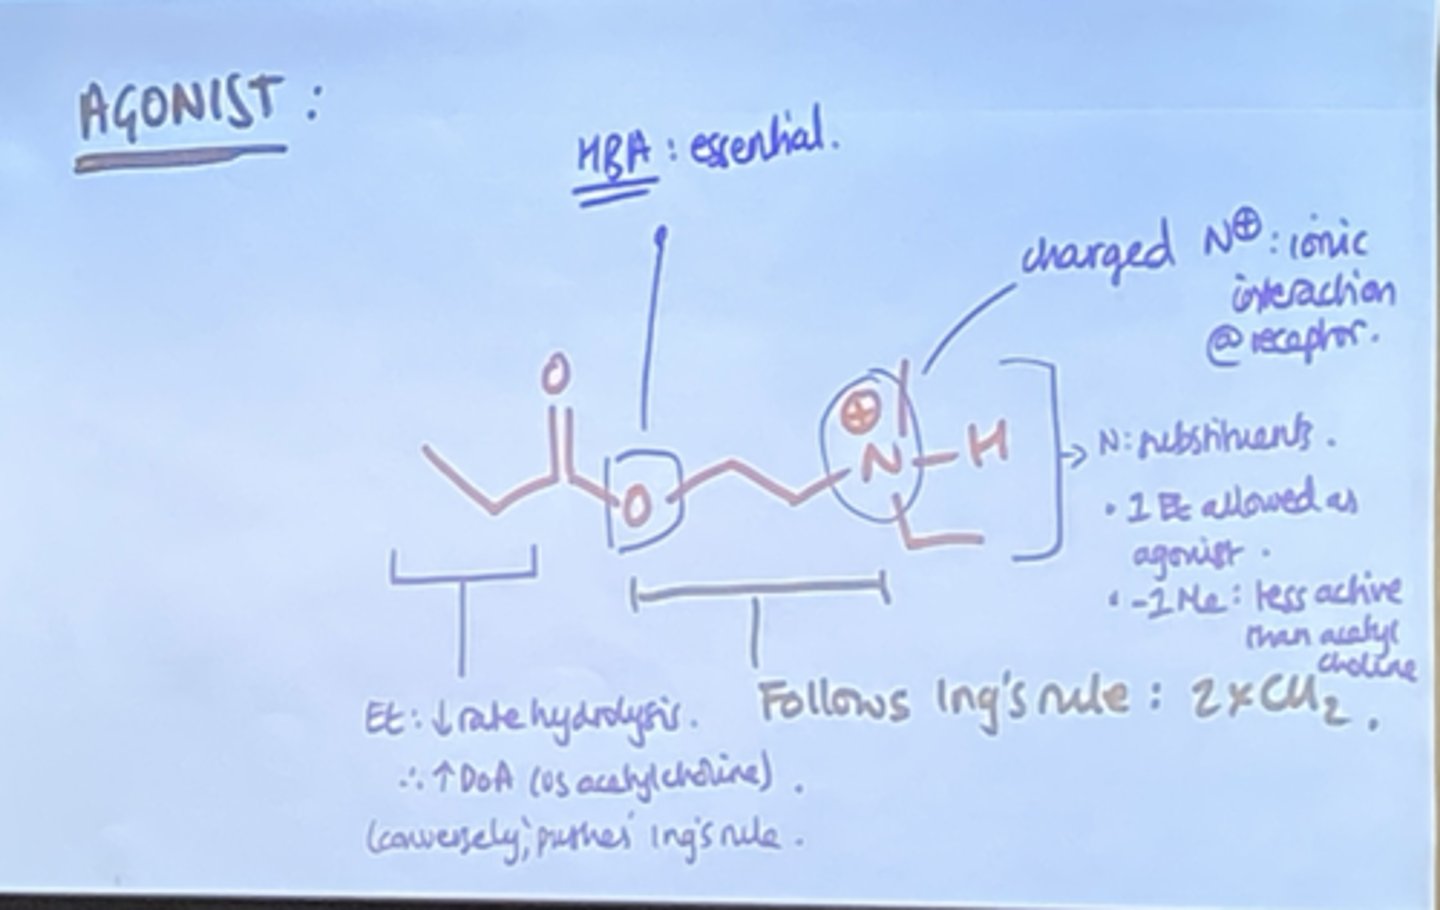 AGONIST :
HBA : essential.
charged N⊕ : ionic
interaction
@ receptor.
O
⊕
N - H
O
N: substituents .
• 1 Et allowed as
agonist .
• -1 Me : less active
than acetyl
choline
Et : ↓ rate hydrolysis .
∴ ↑ DoA (vs acetylcholine) .
(conversely, 'pushes' Ing's rule .
Follows Ing's rule : 2 x CH2 .